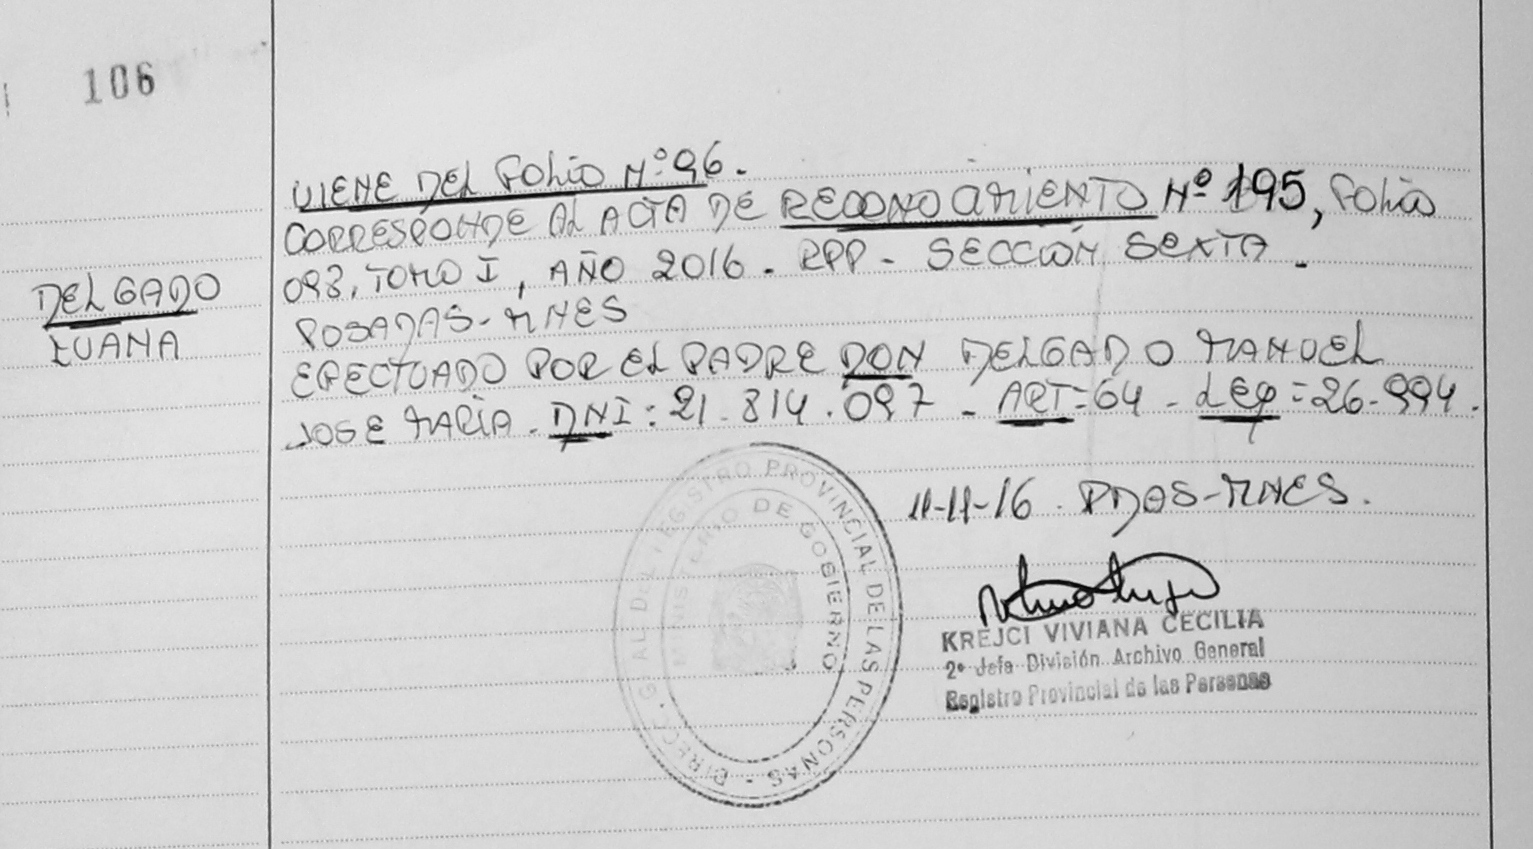 106
VIENE DEL FOLIO Nº 96.
CORRESPONDE AL ACTA DE RECONOCIMIENTO Nº 195, FOLIO
098, TOMO I, AÑO 2016. RPP - SECCIÓN SEXTA.
POSADAS-MNES
EFECTUADO POR EL PADRE DON DELGADO MANUEL
JOSE MARÍA. DNI: 21.814.097 - ART=64 - LEY=26.994.
DELGADO
LUANA
11-11-16. PDAS-MNES.
KREJCI VIVIANA CECILIA
2º Jefa División Archivo General
Registro Provincial de las Personas
DIRECC. GRAL DEL REGISTRO PROVINCIAL DE LAS PERSONAS -
MINISTERIO DE GOBIERNO